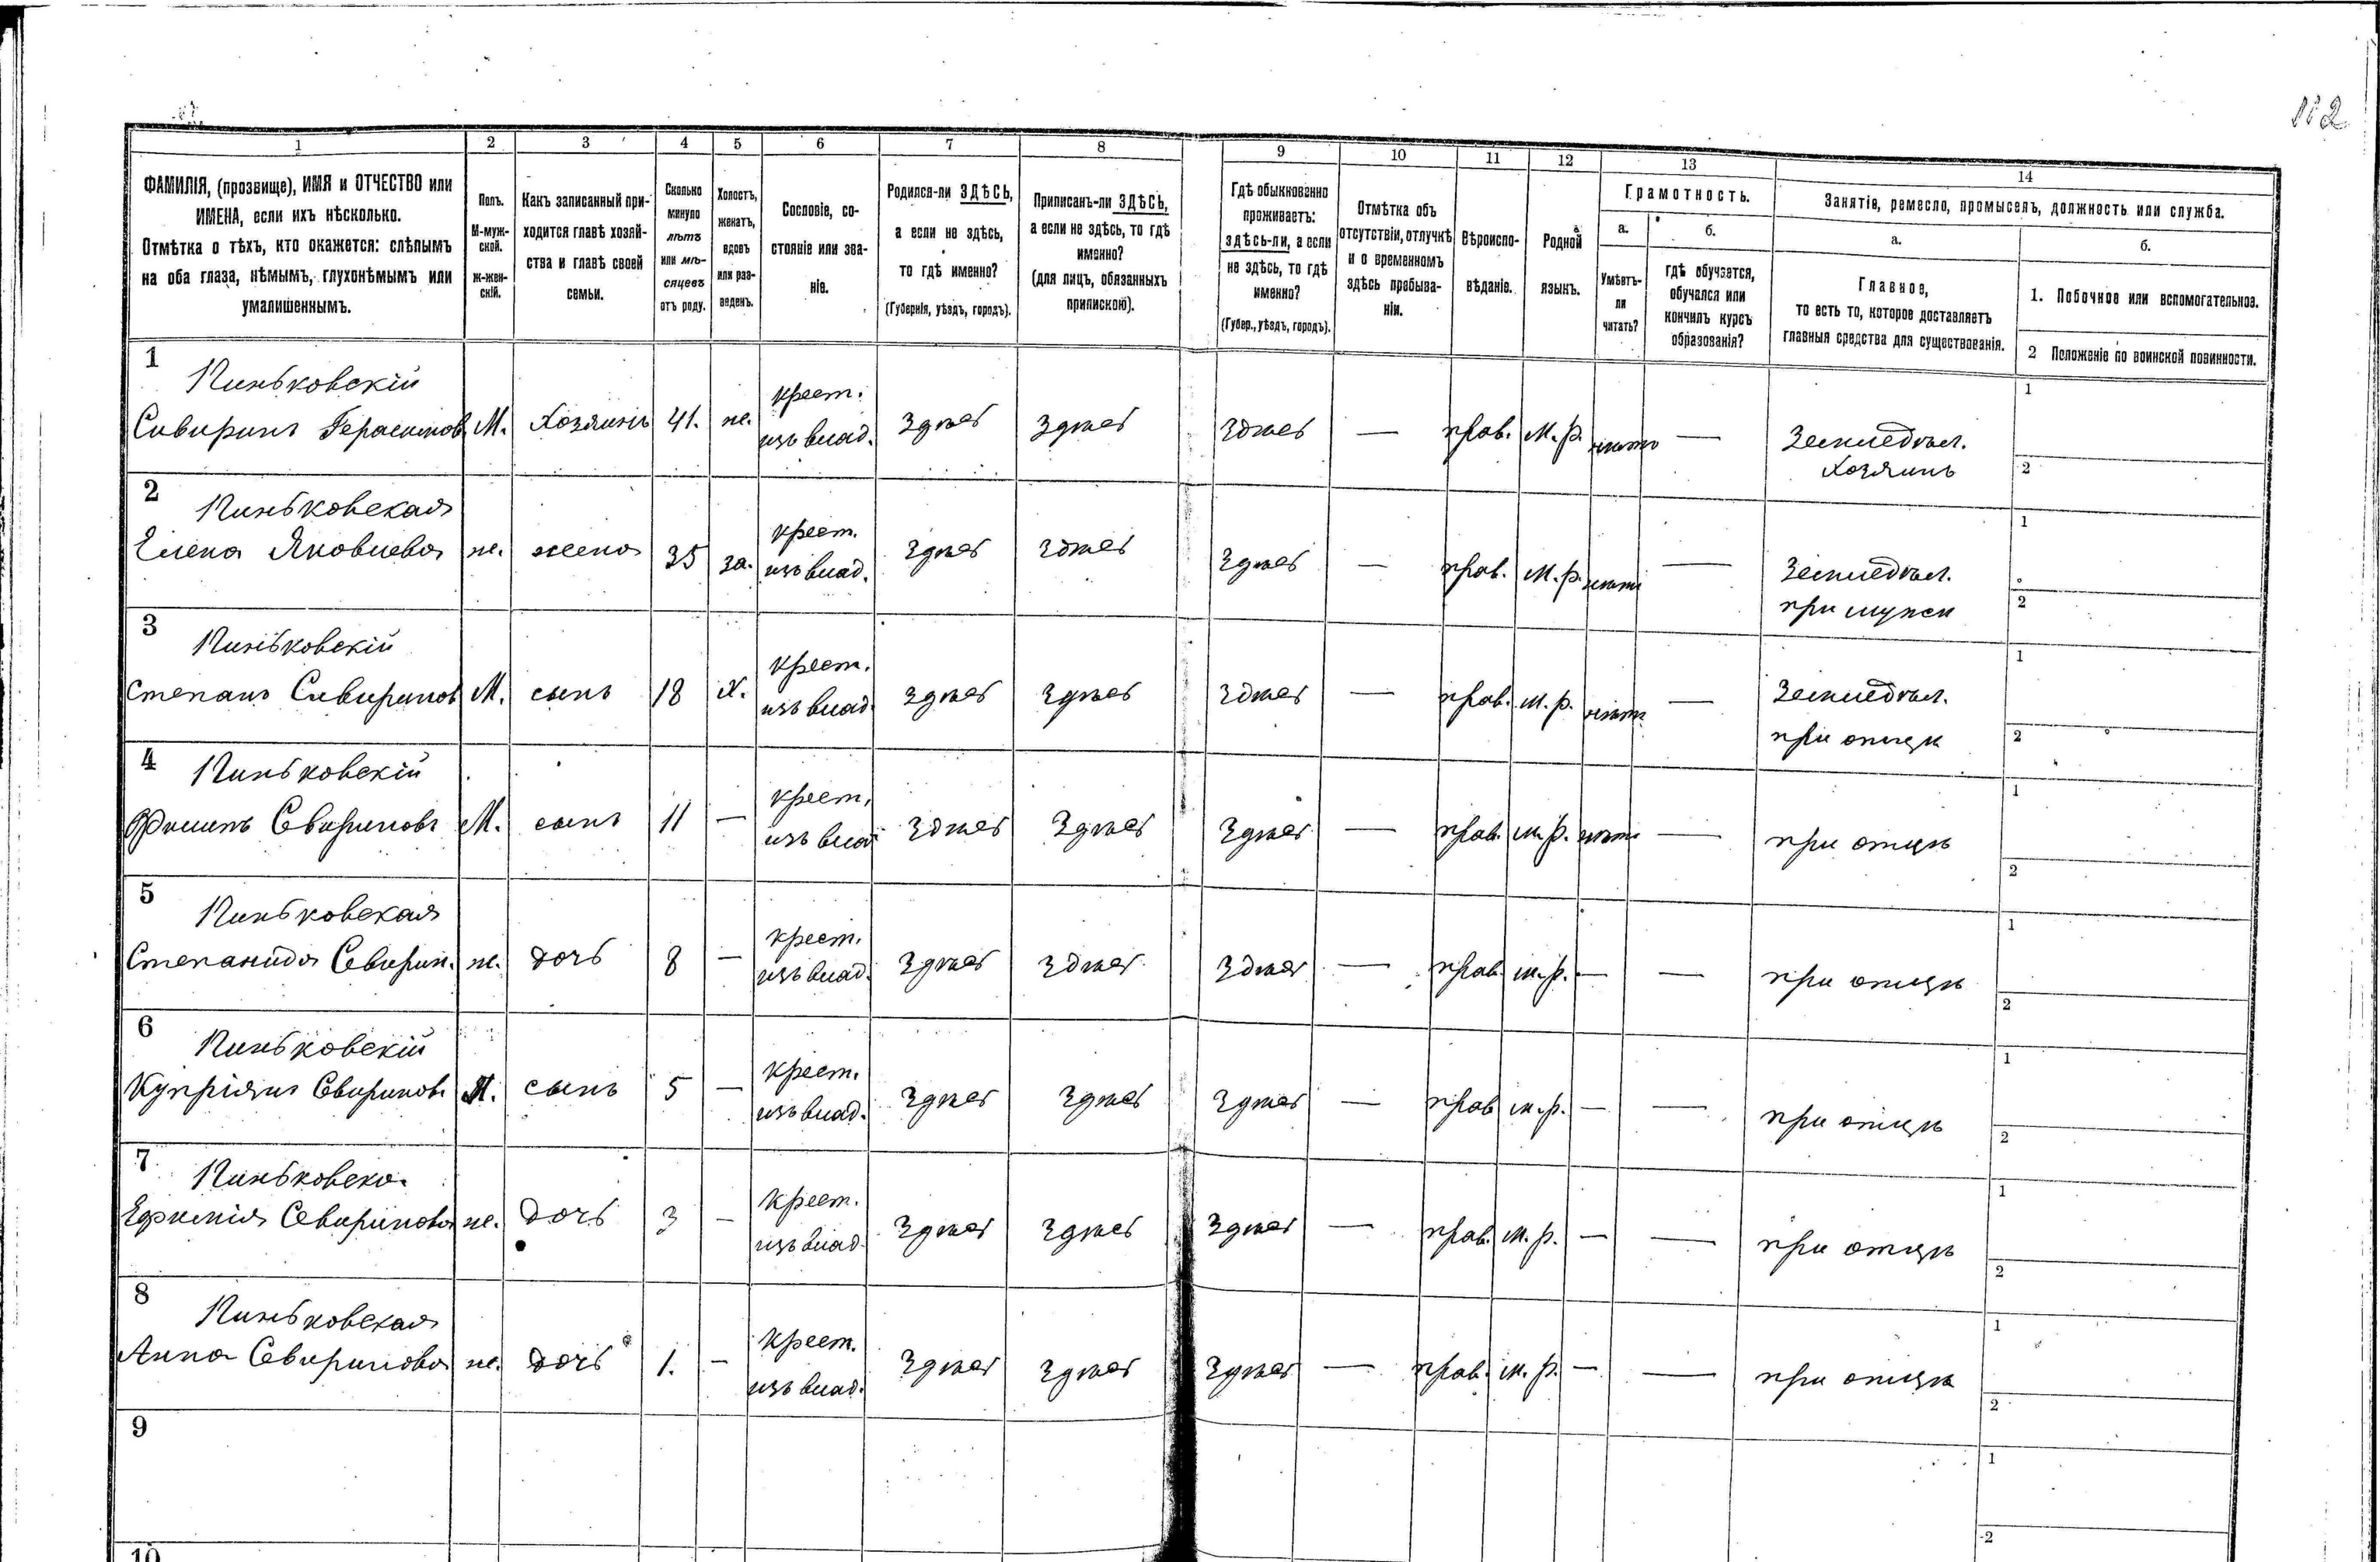 112
1 2 3 4 5 6 7 8 9 10 11 12 13 14
ФАМИЛІЯ, (прозвище), ИМЯ и ОТЧЕСТВО или
ИМЕНА, если ихъ нѣсколько.
Отмѣтка о тѣхъ, кто окажется: слѣпымъ
на оба глаза, нѣмымъ, глухонѣмымъ или
умалишеннымъ.
Полъ.
М-муж-
ской.
ж-жен-
скій.
Какъ записанный при-
ходится главѣ хозяй-
ства и главѣ своей
семьи.
Сколько
минуло
лѣтъ
или мѣ-
сяцевъ
отъ роду.
Холостъ,
женатъ,
вдовъ
или раз-
веденъ.
Сословіе, со-
стояніе или зва-
ніе.
Родился-ли ЗДѢСЬ,
а если не здѣсь,
то гдѣ именно?
(Губернія, уѣздъ, городъ).
Приписанъ-ли ЗДѢСЬ,
а если не здѣсь, то гдѣ
именно?
(для лицъ, обязанныхъ
припискою).
Гдѣ обыкновенно
проживаетъ:
здѣсь-ли, а если
не здѣсь, то гдѣ
именно?
(Губер., уѣздъ, городъ).
Отмѣтка объ
отсутствіи, отлучкѣ
и о временномъ
здѣсь пребыва-
ніи.
Вѣроиспо-
вѣданіе.
Родной
языкъ.
Грамотность.
а.
Умѣетъ-
ли
читать?
б.
гдѣ обучается,
обучался или
кончилъ курсъ
образованія?
Занятіе, ремесло, промыселъ, должность или служба.
а.
Главное,
то есть то, которое доставляетъ
главныя средства для существованія.
б.
1. Побочное или вспомогательное.
2 Положеніе по воинской повинности.
1 Пиньковскій крест. 1
Сивиринъ Герасимовъ М. Хозяинъ 41. же. изъ влад. Здѣсь Здѣсь Здѣсь — прав. М. р. нѣтъ — Земледѣл.
Хозяинъ 2
2 Пиньковская крест. 1
Елена Яковлева ж. жена 35 за. изъ влад. Здѣсь Здѣсь Здѣсь — прав. М. р. нѣтъ — Земледѣл.
при мужѣ 2
3 Пиньковскій крест. 1
Степанъ Сивириновъ М. сынъ 18 Х. изъ влад. Здѣсь Здѣсь Здѣсь — прав. м. р. нѣтъ — Земледѣл.
при отцѣ 2
4 Пиньковскій крест. 1
Свириновъ М. сынъ 11 — изъ влад Здѣсь Здѣсь Здѣсь — прав. м. р. нѣтъ — при отцѣ
2
5 Пиньковская крест. 1
Степанида Свирин. ж. дочь 8 — изъ влад. Здѣсь Здѣсь Здѣсь — прав. м. р. — — при отцѣ
2
6 Пиньковскій крест. 1
Купріянъ Свириновъ М. сынъ 5 — изъ влад. Здѣсь Здѣсь Здѣсь — прав м. р. — — при отцѣ
2
7 Пиньковска. крест. 1
Ефимія Севиринова ж. дочь 3 — изъ влад. Здѣсь Здѣсь Здѣсь — прав. м. р. — — при отцѣ
2
8 Пиньковская крест. 1
Анна Севиринова ж. дочь 1. — изъ влад. Здѣсь Здѣсь Здѣсь — прав. м. р. — — при отцѣ
2
9 1
2
10